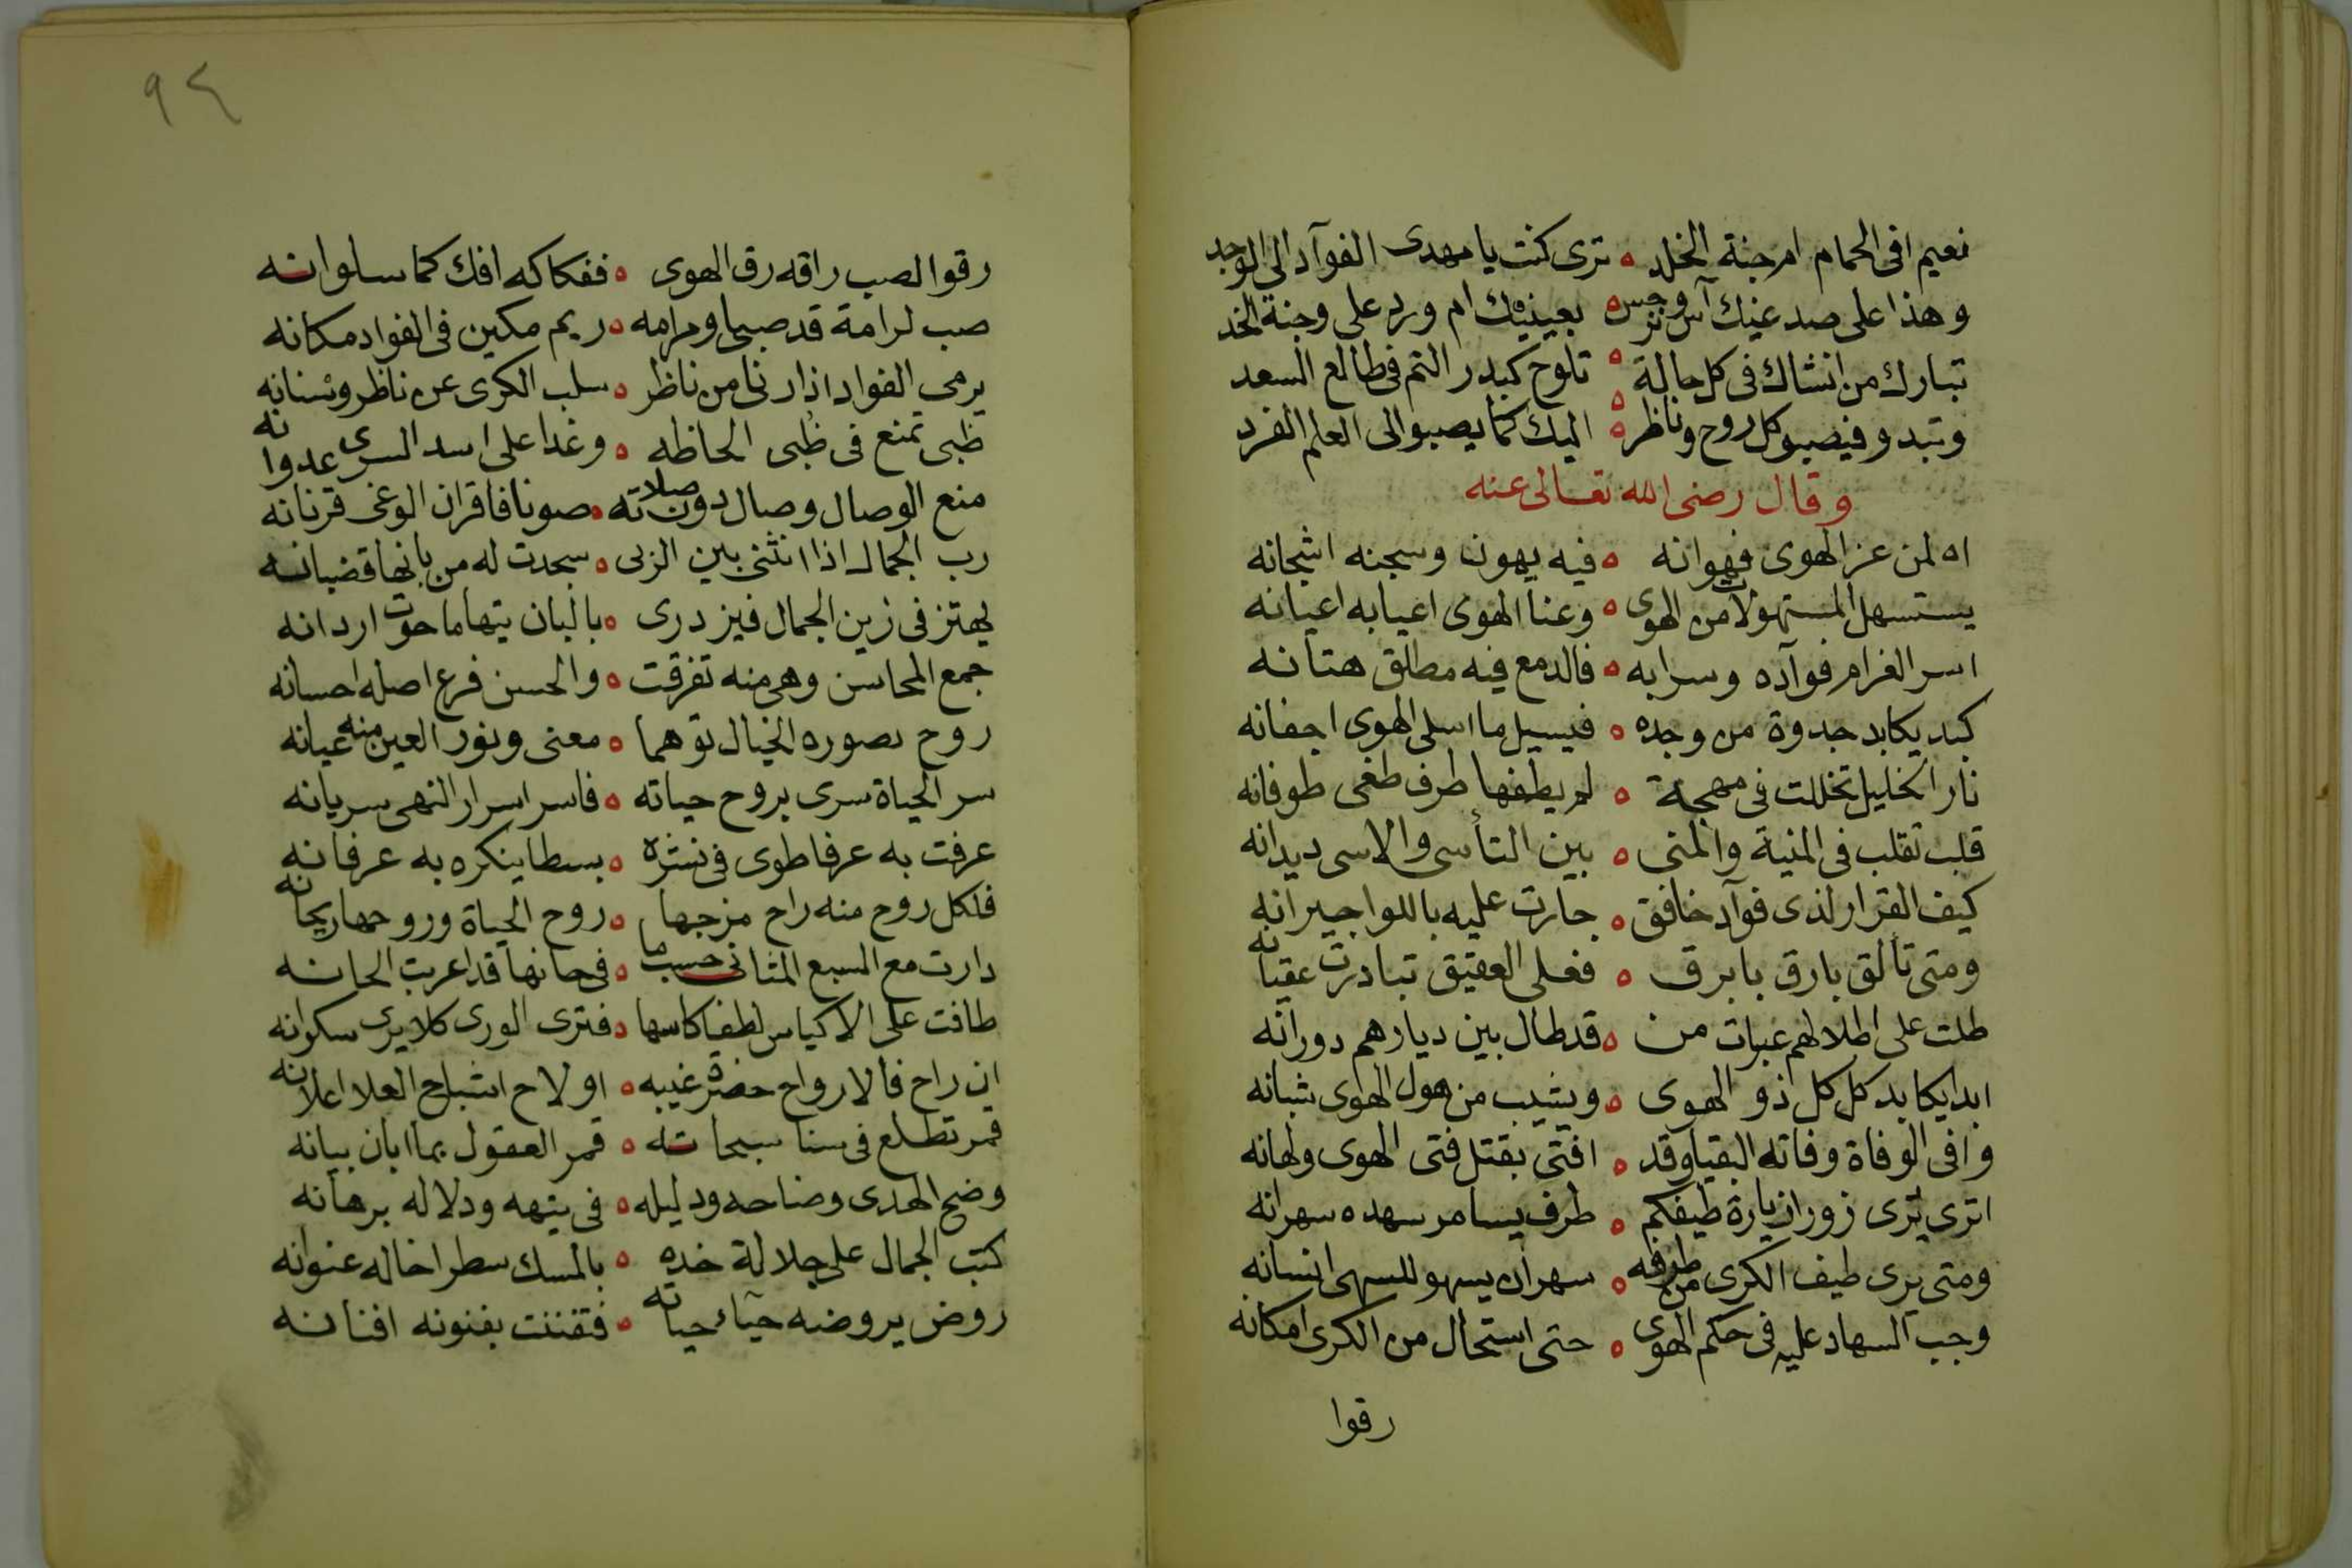 نعيم افى الحمام ام جنة الخلد ه ترى كنت يا مهدى الفوآد الى الوجد
وهذا على صدغيك آس ونرجس ه بعينيك ام ورد على وجنة الخد
تبارك من انشاك فى كل حالة ه تلوح كبدر التم فى طالع السعد
وتبدو فيصبو كل روح وناظر ه اليك كما يصبوا الى العلم الفرد
وقال رضى الله تعالى عنه
اه لمن عز الهوى فهوانه ه فيه يهون وسجنه اشجانه
يستسهل المستهولات من الهوى ه وعنا الهوى اعيا به اعيانه
اسر الغرام فوآده وسرابه ه فالدمع فيه مطلق هتانه
كبد يكابد جدوة من وجده ه فيسيل ما اسلى الهوى اجفانه
نار الخليل تخللت فى مهجة ه لم يطفها طرف طغى طوفانه
قلب تقلب فى المنية والمنى ه بين التأسى والاسى ديدانه
كيف القرار لذى فوآد خافق ه جارت عليه باللوا جيرانه
ومتى تالق بارق بابرق ه فعلى العقيق تبادرت عقيانه
طلت على اطلالهم عبرات من ه قد طال بين ديارهم دورانه
ابدا يكابد كل كل ذو الهوى ه ويشيب من هول الهوى شبانه
وافى الوفاة وفاته البقيا وقد ه افتى بقتل فتى الهوى ولهانه
اترى يرى زورا زيارة طيفكم ه طرف يسامر سهده سهرانه
ومتى يرى طيف الكرى من طرفه ه سهران يسهو للسهى انسانه
وجب السهاد عليه فى حكم الهوى ه حتى استحال من الكرى امكانه
رقوا
٩٤
رقوا لصب راقه رق الهوى ه ففكاكه افك كما سلوانه
صب لرامة قد صبا ومرامه ه ريم مكين فى الفواد مكانه
يرمى الفواد اذا رنا من ناظر ه سلب الكرى عن ناظر وسنانه
ظبى تمنع فى ظبى الحاظه ه وغدا على اسد السرى عدوانه
منع الوصال وصال دون صلاته ه صونا فاقران الوغى قرنانه
رب الجمال اذا انثنى بين الربى ه سجدت له من بانها قضبانه
يهتز فى زين الجمال فيزدرى ه بالبان تيها ما حوت اردانه
جمع المحاسن وهى منه تفرقت ه والحسن فرع اصله احسانه
روح يصوره الخيال توهما ه معنى ونور العين منه عيانه
سر الحياة سرى بروح حياته ه فاسر اسرار النهى سريانه
عرفت به عرفا طوى فى نشره ه بسطا ينكره به عرفانه
فلكل روح منه راح مزجها ه روح الحياة وروحها ريحانه
دارت مع السبع المثانى حسب ما ه فى حانها قد اعربت الحانه
طافت على الاكياس لطفا كاسها ه فترى الورى كلا يرى سكرانه
ان راح فالارواح حضرة غيبه ه او لاح اشباح العلا اعلانه
قمر تطلع فى سنا سبحاته ه قمر العقول بما ابان بيانه
وضح الهدى وضاحه ودليله ه فى تيهه ودلاله برهانه
كتب الجمال على جلالة خده ه بالمسك سطرا خاله عنوانه
روض يروضه حيآء حياته ه فتفننت بفنونه افنانه